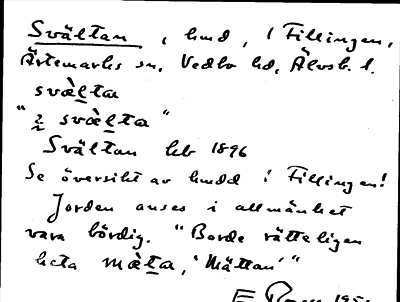 Svältan, hmd, i Fillingen,
Ärtemarks sn, Vedbo hd, Älvsb. l.
svàlta
"i svàlta"
Svältan hb 1896
Se översikt av hmdd i Fillingen!
Jorden anses i allmänhet
vara bördig. "Borde rätteligen
heta màta, 'Mättan'"
E 195